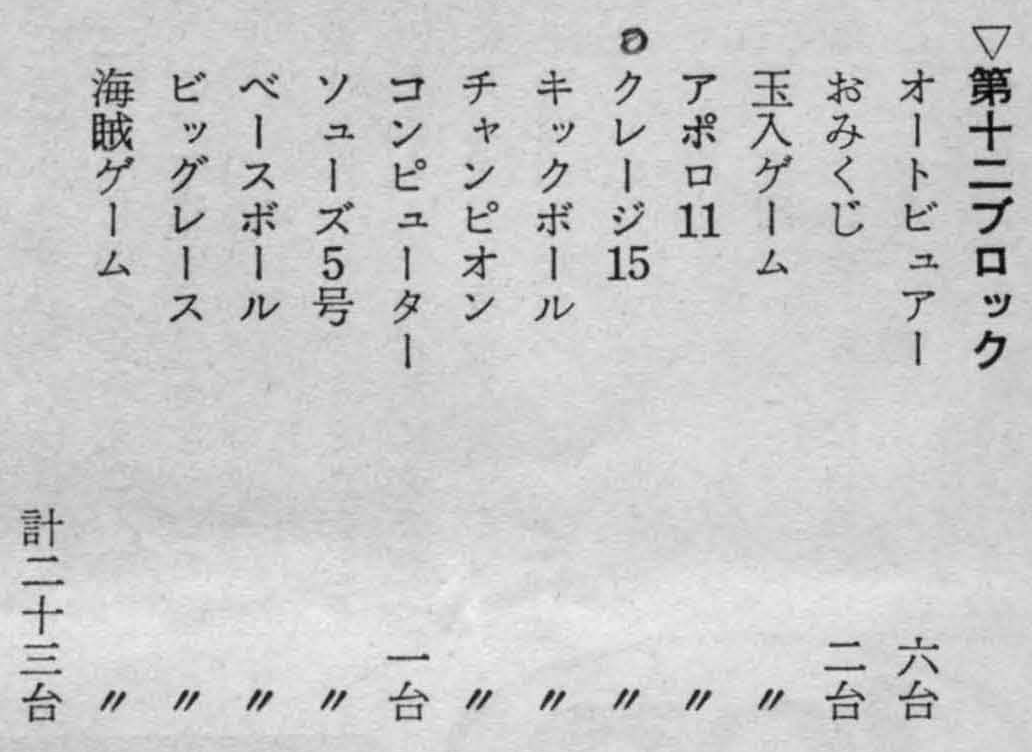 ▽第十二ブロック
オートビュアー 六台
おみくじ 二台
玉入ゲーム 〃
アポロ11 〃
クレージ15 〃
キックボール 〃
チャンピオン 〃
コンピューター 一台
ソユーズ5号 〃
ベースボール 〃
ビッグレース 〃
海賊ゲーム 〃
計二十三台